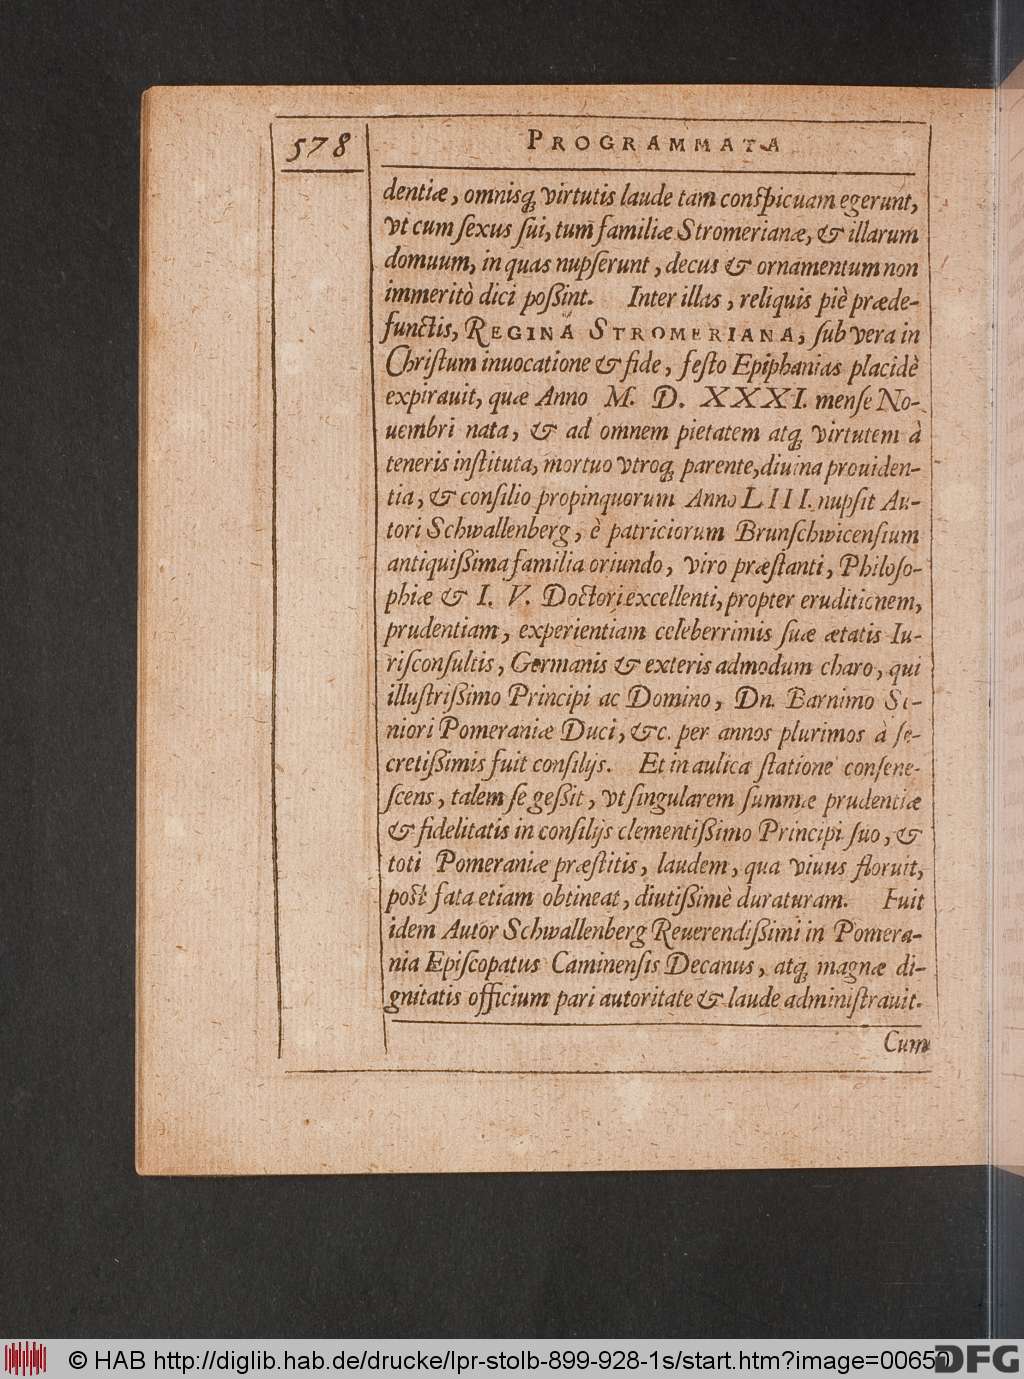 578
PROGRAMMATA
dentiæ, omnisq́; virtutis laude tam conſpicuam egerunt,
vt cum ſexus ſui, tum familiæ Stromerianæ, & illarum
domuum, in quas nupſerunt, decus & ornamentum non
immeritò dici poßint. Inter illas, reliquis piè præde-
functis, REGINA STROMERIANA, ſub vera in
Chriſtum inuocatione & fide, feſto Epiphanias placidè
expirauit, quæ Anno M. D. XXXI. menſe No-
uembri nata, & ad omnem pietatem atq́; virtutem à
teneris inſtituta, mortuo vtroq́; parente, diuina prouiden-
tia, & conſilio propinquorum Anno LIII. nupſit Au-
tori Schwallenberg, è patriciorum Brunſchwicenſium
antiquißima familia oriundo, viro præſtanti, Philoſo-
phiæ & I. V. Doctori excellenti, propter eruditionem,
prudentiam, experientiam celeberrimis ſuæ ætatis Iu-
riſconſultis, Germanis & exteris admodum charo, qui
illuſtrißimo Principi ac Domino, Dn. Barnimo Se-
niori Pomeraniæ Duci, &c. per annos plurimos à ſe-
cretißimis fuit conſilijs. Et in aulica ſtatione conſene-
ſcens, talem ſe geßit, vt ſingularem ſummæ prudentiæ
& fidelitatis in conſilijs clementißimo Principi ſuo, &
toti Pomeraniæ præſtitis, laudem, qua viuus floruit,
poſt fata etiam obtineat, diutißimè duraturam. Fuit
idem Autor Schwallenberg Reuerendißimi in Pomera-
nia Epiſcopatus Caminenſis Decanus, atq́; magnæ di-
gnitatis officium pari autoritate & laude adminiſtrauit.
Cum
© HAB http://diglib.hab.de/drucke/lpr-stolb-899-928-1s/start.htm?image=00650
DFG